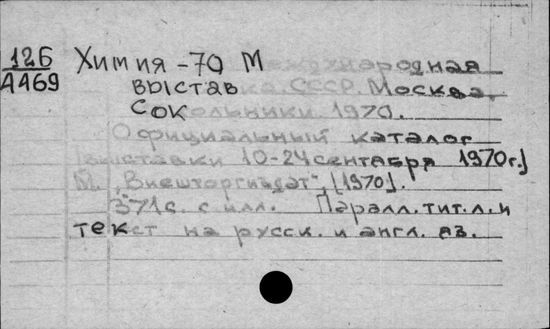 126
А469
Химия-70 Международная
выставка СССР. Москва,
Сокольники 1970.
Официальный каталог
[выставки 10-24 сентября 1970г.]
М. "Внешторгиздат", [1970].
371с. с илл. Паралл. тит. л. и
текст на русск. и англ. яз.